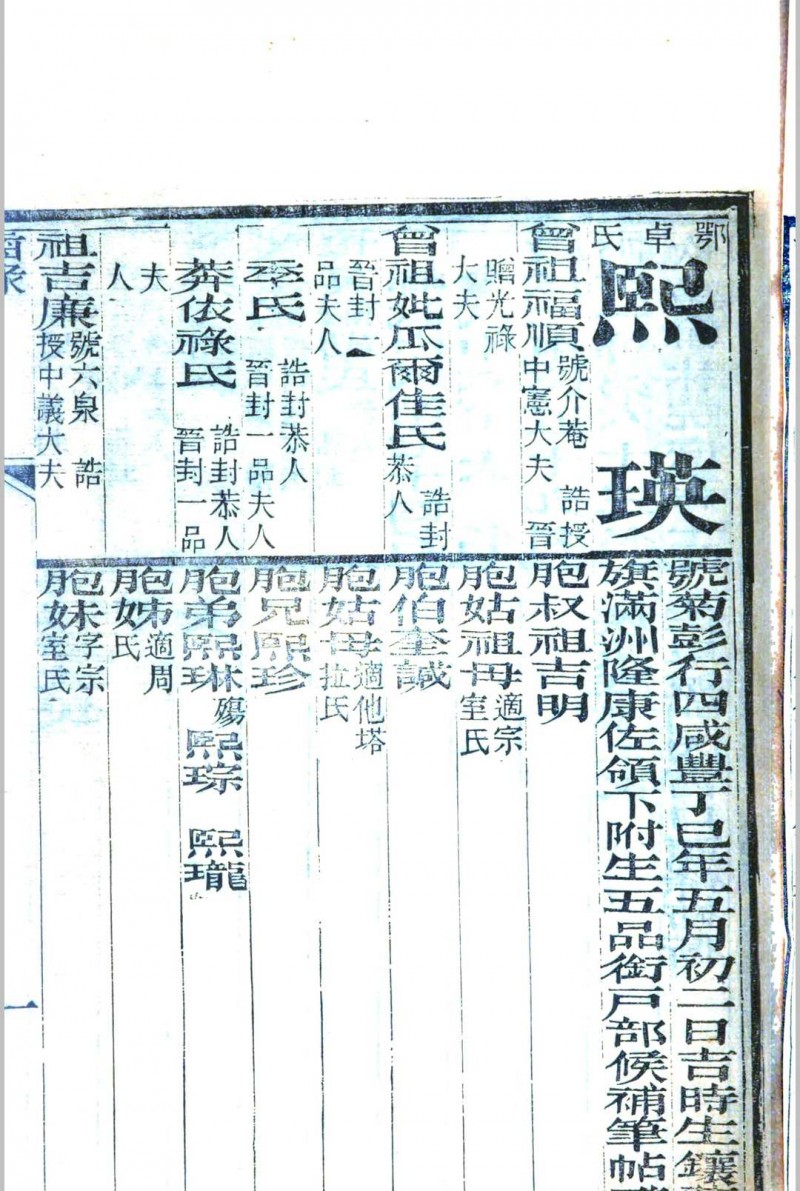 鄂卓氏
熙瑛
號菊彭行四咸豐丁巳年五月初二日吉時生鑲
旗滿洲隆康佐領下附生五品銜戶部候補筆帖
曾祖福順號介菴 誥授
中憲大夫 晉
贈光祿
大夫
曾祖妣瓜爾佳氏 誥封
恭人
晉封一
品夫人
季氏 誥封恭人
晉封一品夫人
莽依祿氏 誥封恭人
晉封一品
夫
人
祖吉廉號六泉 誥
授中議大夫
胞叔祖吉明
胞姑祖母適宗
室氏
胞伯奎誠
胞姑母適他塔
拉氏
胞兄熙珍
胞弟熙琳殤 熙琮 熙瓏
胞姊適周
氏
胞妹字宗
室氏